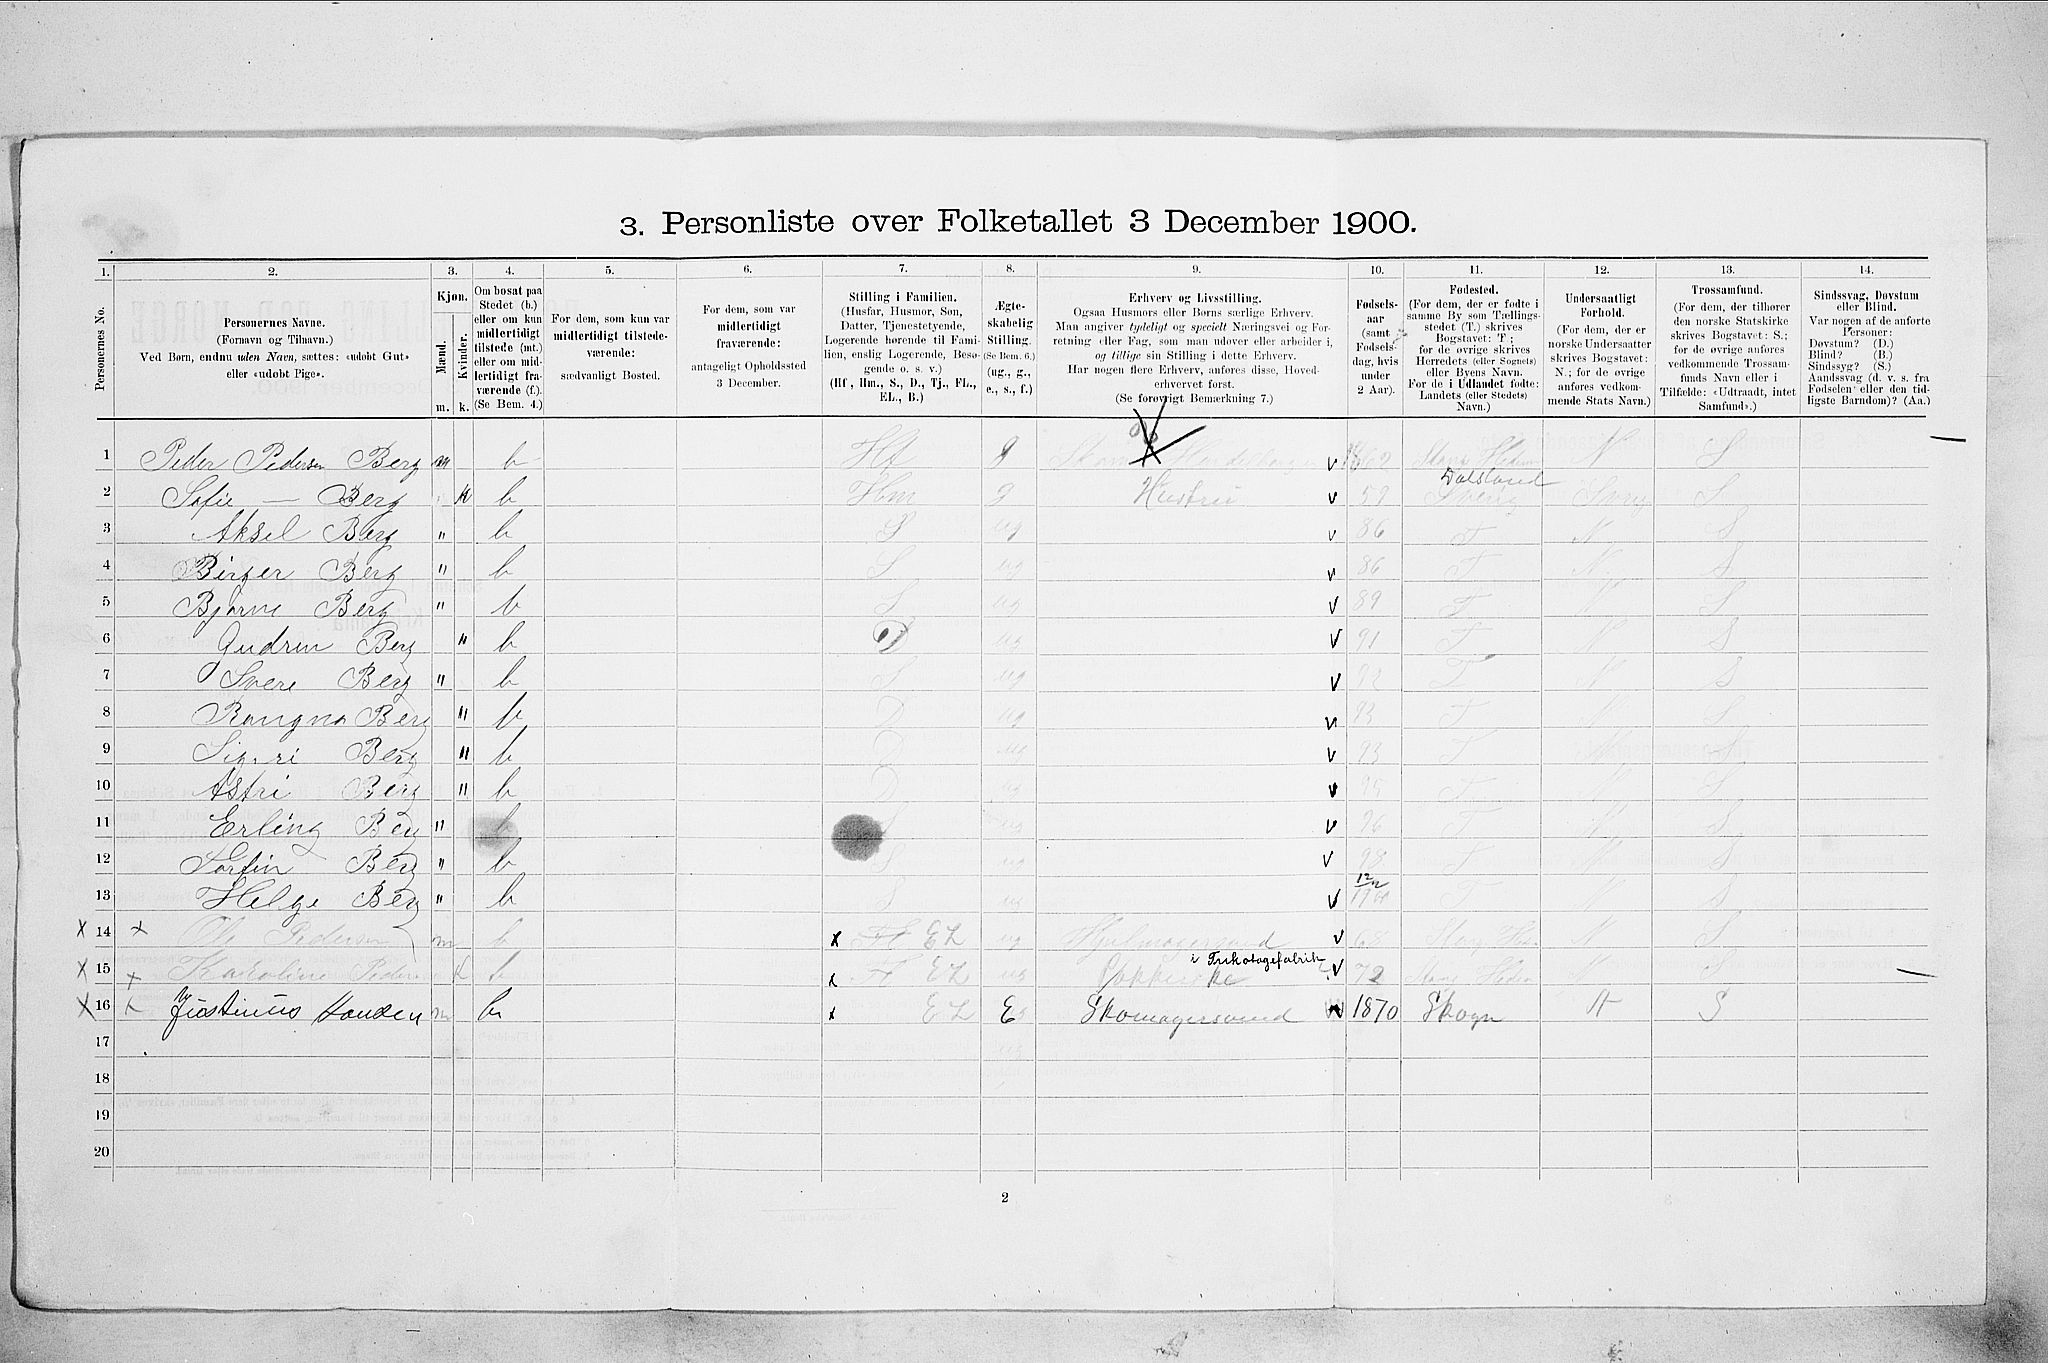 3. Personliste over Folketallet 3 December 1900.
1. 2. 3. 4. 5. 6. 7. 8. 9. 10. 11. 12. 13. 14.
Personernes No.
Personernes Navne.
(Fornavn og Tilnavn.)
Ved Børn, endnu uden Navn, sættes: «udøbt Gut»
eller «udøbt Pige».
Kjøn.
Mænd.
Kvinder.
m. k.
Om bosat paa
Stedet (b.)
eller om kun
midlertidigt
tilstede (mt.)
eller om mid-
lertidigt fra-
værende (f.).
(Se Bem. 4.)
For dem, som kun var
midlertidigt tilstede-
værende:
sædvanligt Bosted.
For dem, som var
midlertidigt
fraværende:
antageligt Opholdssted
3 December.
Stilling i Familien.
(Husfar, Husmor, Søn,
Datter, Tjenestetyende,
Logerende hørende til Fami-
lien, enslig Logerende, Besø-
gende o. s. v.)
(Hf, Hm., S., D., Tj., FL.,
EL., B.)
Ægte-
skabelig
Stilling.
(Se Bem. 6.)
(ug., g.,
e., s., f.)
Erhverv og Livsstilling.
Ogsaa Husmors eller Børns særlige Erhverv.
Man angiver tydeligt og specielt Næringsvei og For-
retning eller Fag, som man udøver eller arbeider i,
og tillige sin Stilling i dette Erhverv.
Har nogen flere Erhverv, anføres disse, Hoved-
erhvervet først.
(Se forøvrigt Bemærkning 7.)
Fødsels-
aar
(samt
Fødsels-
dag, hvis
under
2 Aar).
Fødested.
(For dem, der er fødte i
samme By som Tællings-
stedet (T.) skrives
Bogstavet: T;
for de øvrige skrives
Herredets (eller Sognets)
eller Byens Navn.
For de i Udlandet fødte:
Landets (eller Stedets)
Navn.)
Undersaatligt
Forhold.
(For dem, der er
norske Undersaatter
skrives Bogstavet:
N.; for de øvrige
anføres vedkom-
mende Stats Navn.)
Trossamfund.
(For dem, der tilhører
den norske Statskirke
skrives Bogstavet: S.;
for de øvrige anføres
vedkommende Trossam-
funds Navn eller i
Tilfælde: «Udtraadt, intet
Samfund».)
Sindssvag, Døvstum
eller Blind.
Var nogen af de anførte
Personer:
Døvstum? (D.)
Blind? (B.)
Sindssyg? (S.)
Aandssvag (d. v. s. fra
Fødselen eller den tid-
ligste Barndom)? (Aa.)
1 Peder Pedersen Berg m b Hf g v N S
Dalsland
2 Sofie — Berg k b Hm g Hustru v 59 Sverig S
3 Aksel Berg " b S ug v 86 T N S
4 Birger Berg " b S ug v 86 T N S
5 Bjarne Berg " b S ug v 89 T N S
6 Gudrun Berg " b D ug v 91 T N S
7 Svere Berg " b S ug v 92 T N S
8 Rangna Berg " b D ug v 93 T N S
9 Sigri Berg " b D ug v 93 T N S
10 Astri Berg " b D ug v 95 T N S
11 Erling Berg " b S ug v 96 T N S
12 Torfin Berg " b S ug v 98 T N S
13 Helge Berg " b S ug v 12/2 1900 T N S
x 14 x Ole Pedersen m b x EL ug Hjulmagersvend v 68 N S
i Trikotagefabrik
x 15 x Karoline Pedersen k b x EL ug v 72 N S
x 16 x Justinus Handen m b x EL E Skomagersvend 1870 Skogn N S
17
18
19
20
2